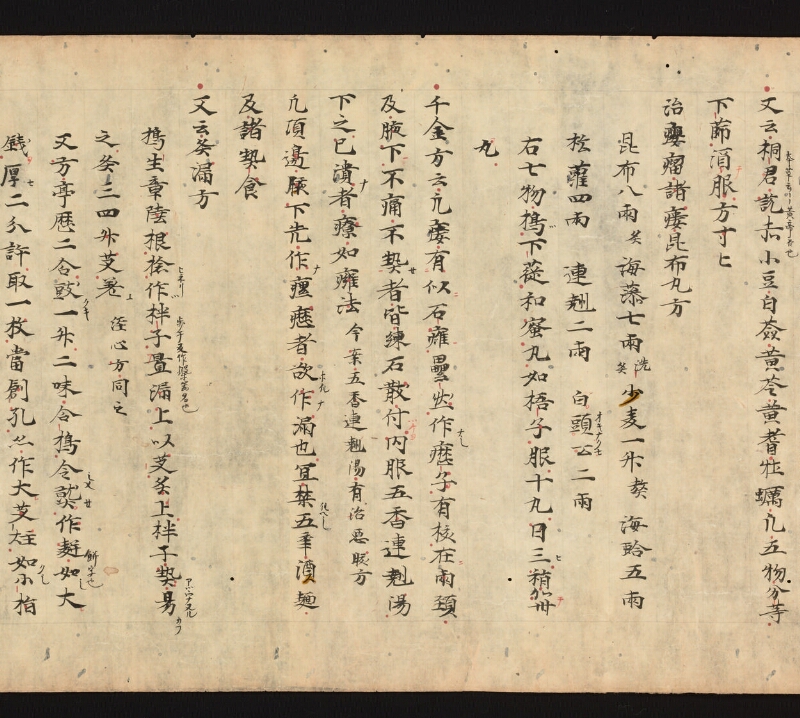 又云桐君説赤小豆白蘞黄芩黄耆牡蠣凡五物分等
下篩酒服方寸匕
治癭瘤諸瘻昆布丸方
昆布八兩炙 海藻七兩洗炙 小麦一升熬 海蛤五兩
松蘿四兩 連翹二兩 白頭公二兩
右七物搗下蓰和蜜丸如梧子服十丸日三稍加卅
丸
千金方云凡瘻有似石癰壘々作㾦子有核在兩頚
及腋下不痛不熱者皆練石散付内服五香連翹湯
下之已潰者療如癰法 今案五香連翹湯有治悪脹方
凡項邉腋下先作㾦者欲作漏也宜禁五辛酒麺
及諸熱食
又云灸漏方
搗生章陸根捻作柈子置漏上以艾灸上柈子熱易
之灸三四升艾差 
又方亭歴二合豉一升二味合搗令熟作麺如大
銭厚二分許取一枚當創孔上作大艾炷如小指